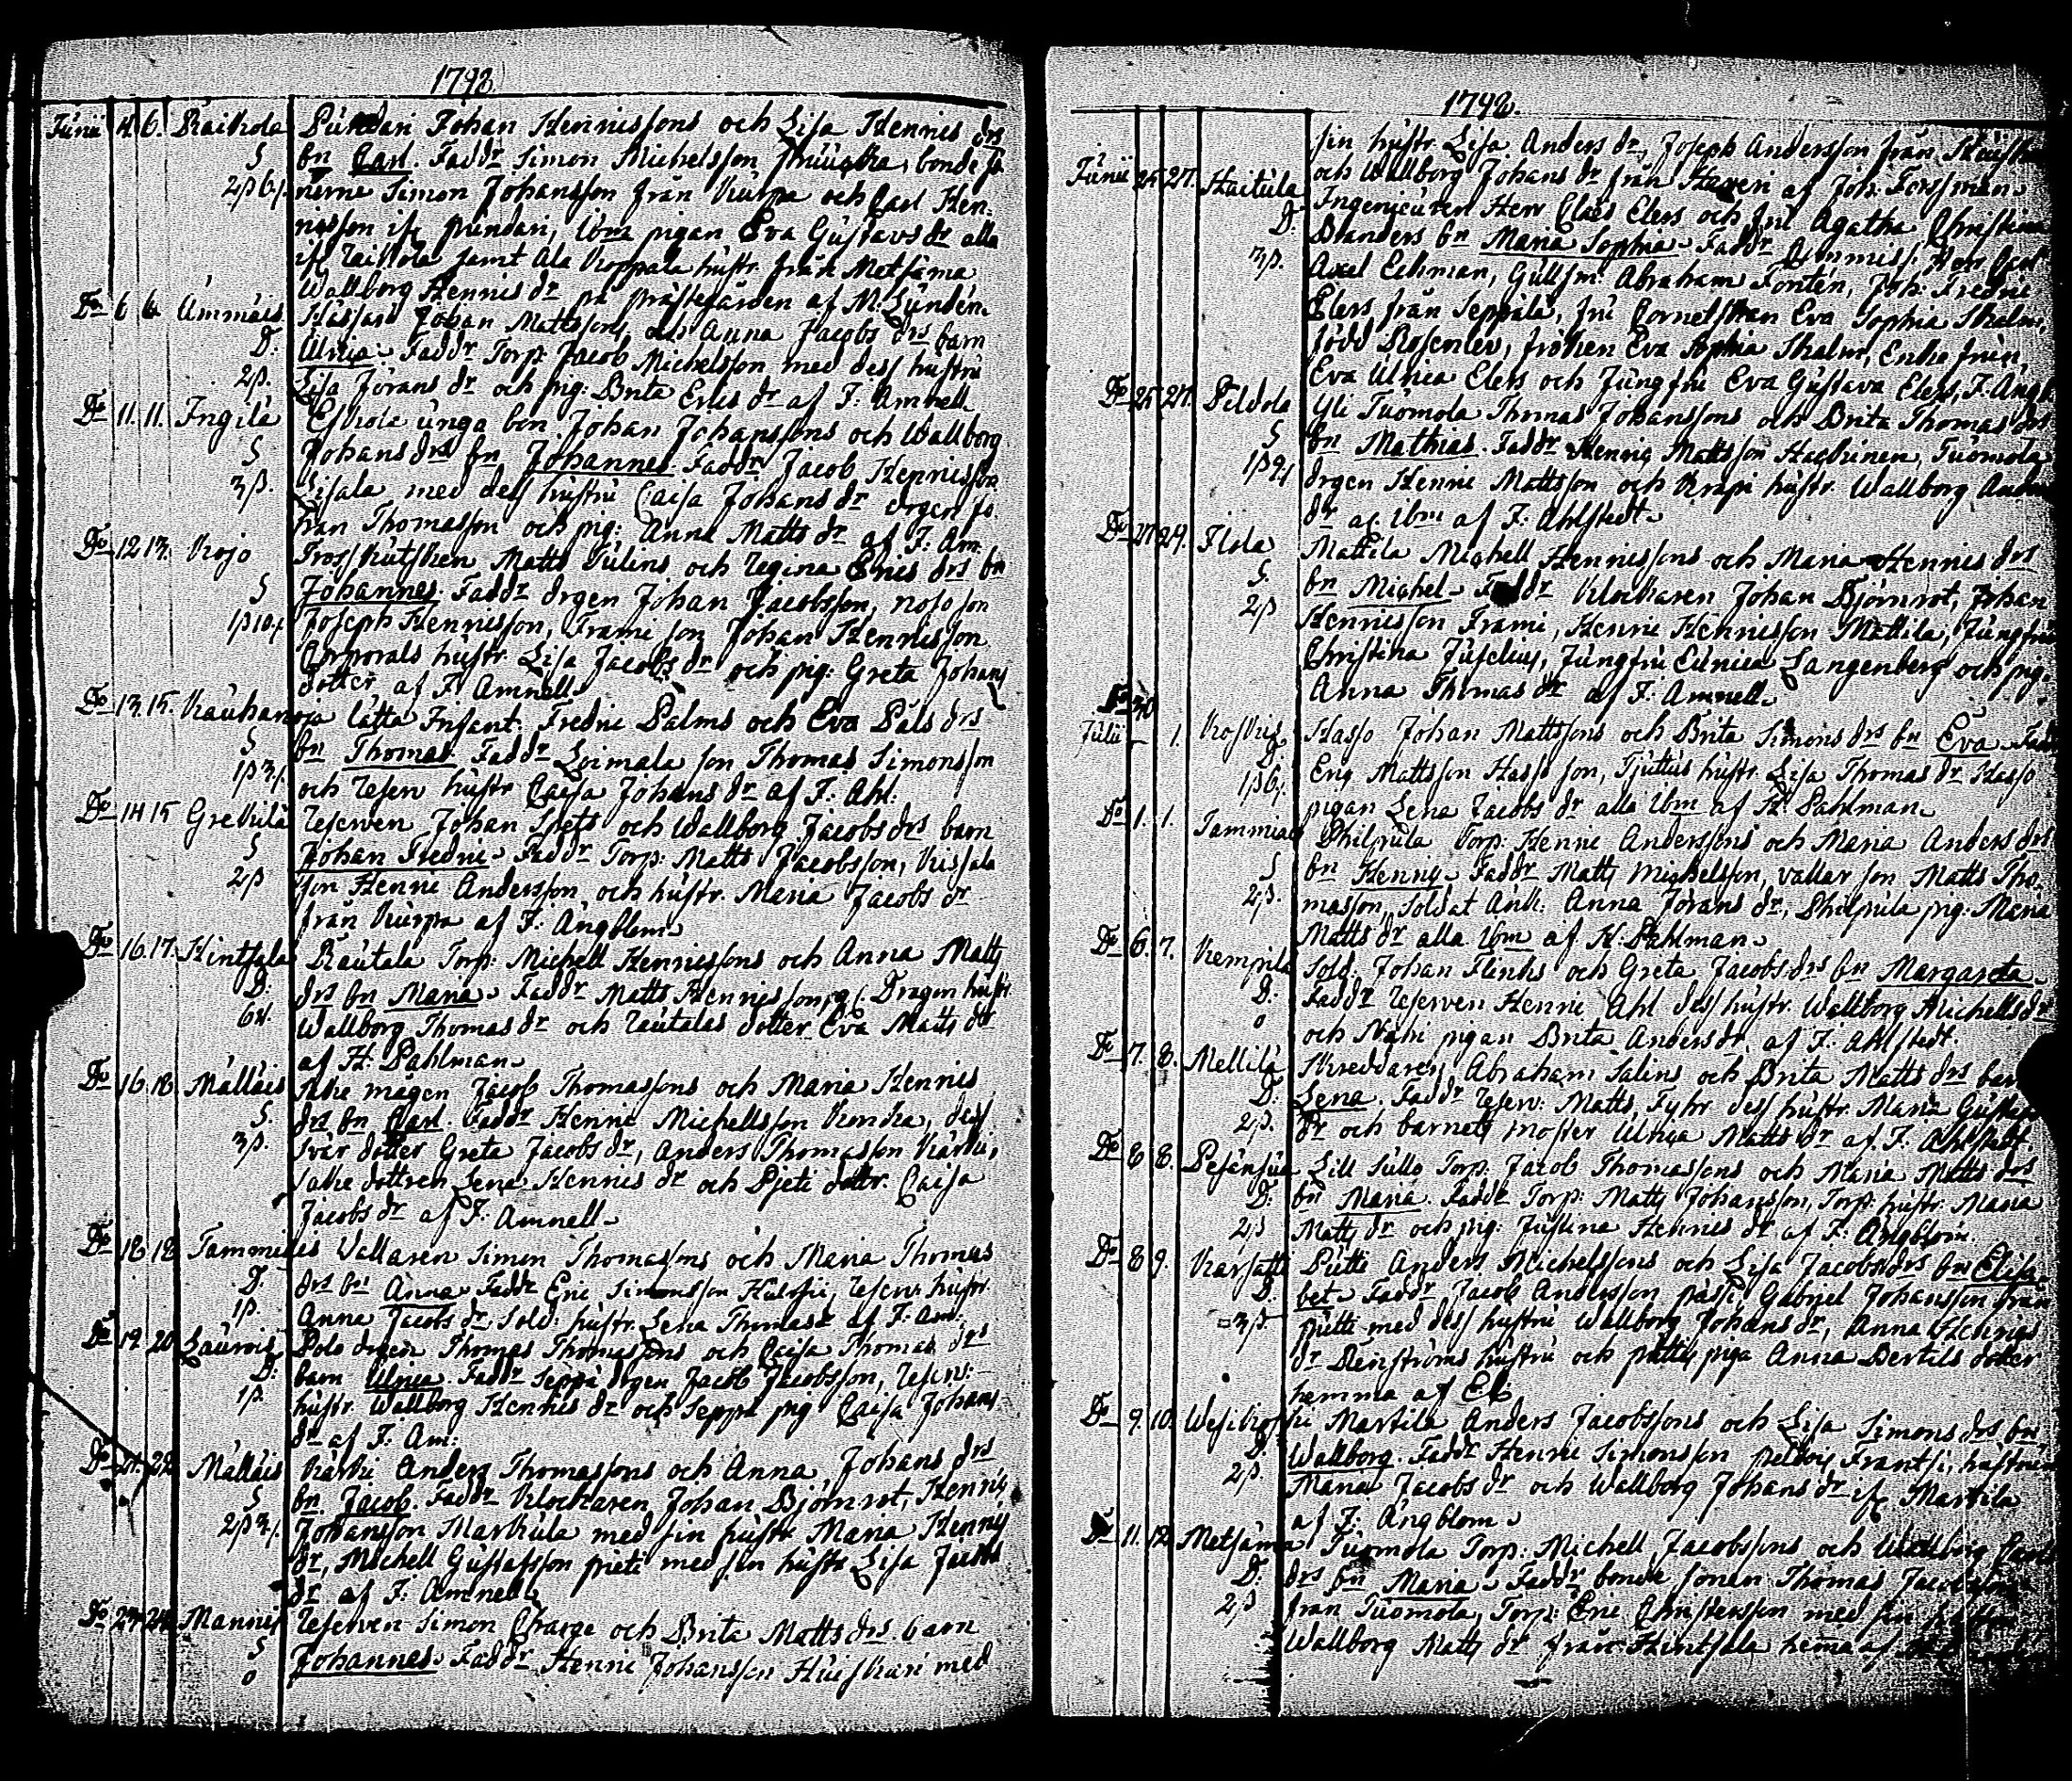 1792
Junii 4. 6. Raikola Pundari Johan Hennissons och Lisa Hennis drs
S bn Carl. Faddr Simon Michelsson bonde sö
2ß 6. nerne Simon Johansson från Kurpa och Carl Hen-
nisson ifr pundari, ibm pigan Eva Gustavs dr alla
ifr Raikola samt Ala Koppala hustr. från Metsäma
Wallborg Hennis dr på prästegården af M. Lundén.
Do 6 6 Ammäis Johan Mattssons och Anna Jacobs drs barn
D. Ulrica. Faddr Torp. Jacob Michelsson med dess hustru
2ß. Lisa Jörans dr och pig: Brita Erics dr af F: Amnell
Do 11. 11. Ingilä Eskola unga bon. Johan Johanssons och Wallborg
S Johans drs bn Johannes. Faddr Jacob Hennisson
3ß. Sisala med dess hustru Caisa Johans dr drgen Jo-
han Thomasson och pig: Anna Matts dr af F: Am.
Do 12 13. Kojo Tross kutsken Matts Julins och Regina Erics drs bn
S Johannes. Faddr drgen Johan Jacobsson, son
1ß 10. Joseph Hennisson, Frami son Johan Hennisson
Corporals hustr. Lisa Jacobs dr och pig: Greta Johans
dotter af F: Amnell.
Do 13. 15. Kauhanoja lätta Infant. Fredric Palms och Eva Påls drs
S bn Thomas. Faddr Loimala son Thomas Simonsson
1ß 3. och Reserv hustr Caisa Johans dr af F: Ahl:
Do 14 15 Grekilä Reserven Johan Spets och Wallborg Jacobs drs barn
S Johan Fredric. Faddr Torp. Matts Jacobsson, Kissala
2ß son Henric Andersson, och hustr. Maria Jacobs dr
från Kurpa af F: Ängblom.
Do 16. 17. Hintsala Rautala Torp. Michell Hennissons och Anna Matts
D. drs bn Maria. Faddr Matts Hennisson, Dragon hustr
6. Wallborg Thomas dr och Rautalas dotter Eva Matts dr
af H. Pahlman.
Do 16. 18. Mälläis mågen Jacob Thomassons och Maria Hennis
S. drs bn Carl. Faddr Henric Michellsson Konka, dess
3ß. svär dotter Greta Jacobs dr, Anders Thomasson Kärki,
dottren Lena Hennis dr och Pjeti dottr. Caisa
Jacobs dr af F: Amnell.
Do 18 18 Tammiais Vallaren Simon Thomassons och Maria Thomas
D. drs bn Anna. Faddr Eric Simonsson, Reserv hustr
1ß. Anna Jacobs dr, Sold: hustr. Lena Thomas dr af F: Am:
Do 19. 20. Laurois Polo drgen Thomas Thomassons och Caisa Thomas drs
D. barn Ulrica. Faddr Seppä drgen Jacob Jacobsson, Reserv:
1ß. hustr. Wallborg Hennis dr och Seppä pig Caisa Johans
dr af F: Am:
Do 21. 22. Mälläis Kärki Anders Thomassons och Anna Johans drs
S bn Jacob. Faddr Klockaren Johan Björnrot, Hennis
2ß 3. Johansson Markula med sin hustr. Maria Hennis
dr, Michell Gustafsson pieti med sin hustr Lisa Jacobs
dr af F: Amnell
Do 23. 24. Mannis Reserven Simon Charge och Brita Matts drs. barn
S Johannes. Faddr Henric Johansson med
0
1792.
sin hustr Lisa Anders dr, Joseph Andersson från
och Wallborg Johans dr från Haveri af Joh: Forssman.
Junii 25 27. Haitula Ingenieuren Herr Claës Elers och fru Agatha Christina
D. Branders bn Maria Sophia. Faddr Herr
3ß. Axel Eckman, Gullsm. Abraham Fontén, Joh: Fredric
Elers från Seppälä, fru Cornetskan Eva Sophia Skalm,
född Rosenlev, fröken Eva Sophia Skalm, Enke frun
Eva Ulrica Elers och Jungfru Eva Gustava Elers, F. Ängb
Do 25 27. Peldola Yli Tuomola Thomas Johanssons och Brita Thomas drs
S bn Mathias. Faddr Hennis Mattsson, Tuomola
1ß 9. drgen Henric Mattsson och Krapi hustr. Wallborg
dr af. ibm af F: Ahlstedt.
Do 27 29. Ilola Mattila Michell Hennissons och Maria Hennis drs
S. bn Michel. Faddr Klockaren Johan Björnrot, Johan
2ß Hennisson Frami, Henric Hennisson Mattila, Jungfru
Christina Juselius, Jungfru Eunica Langenberg och pig.
Anna Thomas dr af F: Amnell.
Do 30
Julii 1. Koskis Hasso Johan Mattssons och Brita Simons drs bn Eva. Fad
D. Eric Mattsson Hasso son, hustr. Lisa Thomas dr. Hasso
1ß 6. pigan Lena Jacobs dr alla ibm af H. Pahlman.
Do 1. 1. Tammiais Philpula Torp: Henric Anderssons och Maria Anders drs
S bn Hennis. Faddr Matts Michelsson, vallar son Matts Tho-
2ß. masson, Soldat Änk: Anna Jörans dr, Philpula pig: Maria
Matts dr alla ibm af H. Pahlman.
Do 6. 7. Kempilä Sold: Johan Flinks och Greta Jacobs drs bn Margareta.
D. Faddr Reserven Henric Ahl dess hustr. Wallborg Michells dr
0 och pigan Brita Anders dr. af F: Ahlstedt.
Do 7. 8. Mellilä Skreddaren Abraham Salins och Brita Matts drs bar
D. Lena. Faddr Reserv: Matts Fyhr dess hustr. Maria
2ß. dr och barnets moster Ulrica Matts dr af F: Ahlstedt.
Do 8 8. Pesänsuo Lill Sullo Torp. Jacob Thomassons och Maria Matts drs
D. bn Maria. Faddr Torp: Matts Johansson, Torp: hustr. Maria
2ß Matts dr och pig: Justina Hennis dr af F: Ängblom.
Do 8 9. Karsatti Putti Anders Michelssons och Lisa Jacobs drs bn Elisa-
D. bet. Faddr Jacob Andersson, Gabriel Johansson från
3ß putti med dess hustru Wallborg Johans dr, Anna Hennis
dr hustru och puttis piga Anna Bertils dotter
hemma af
Do 9. 10. Wesikoski Martila Anders Jacobssons och Lisa Simons drs bn
D. Wallborg. Faddr Henric Simonsson Frantsi, hustrun
2ß. Maria Jacobs dr och Wallborg Johans dr ifr Martila
af F: Ängblom.
Do 11. 12. Metsäma Tuomola Torp: Michell Jacobssons och Wallborg
D. drs bn Maria. Faddr bonde sonen Thomas Jacobsson
2ß från Tuomola, Torp: Eric Christersson med sin
Wallborg Matts dr från Hintsala hema af